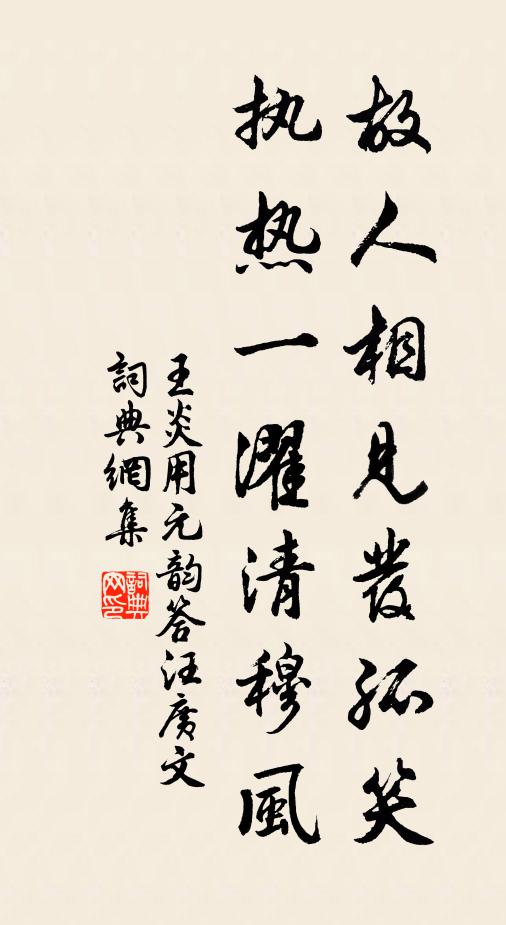 故人相見發孤笑
执热一濯清穆風
王炎用元韵答汪廣文
詞典網集
詞典網印